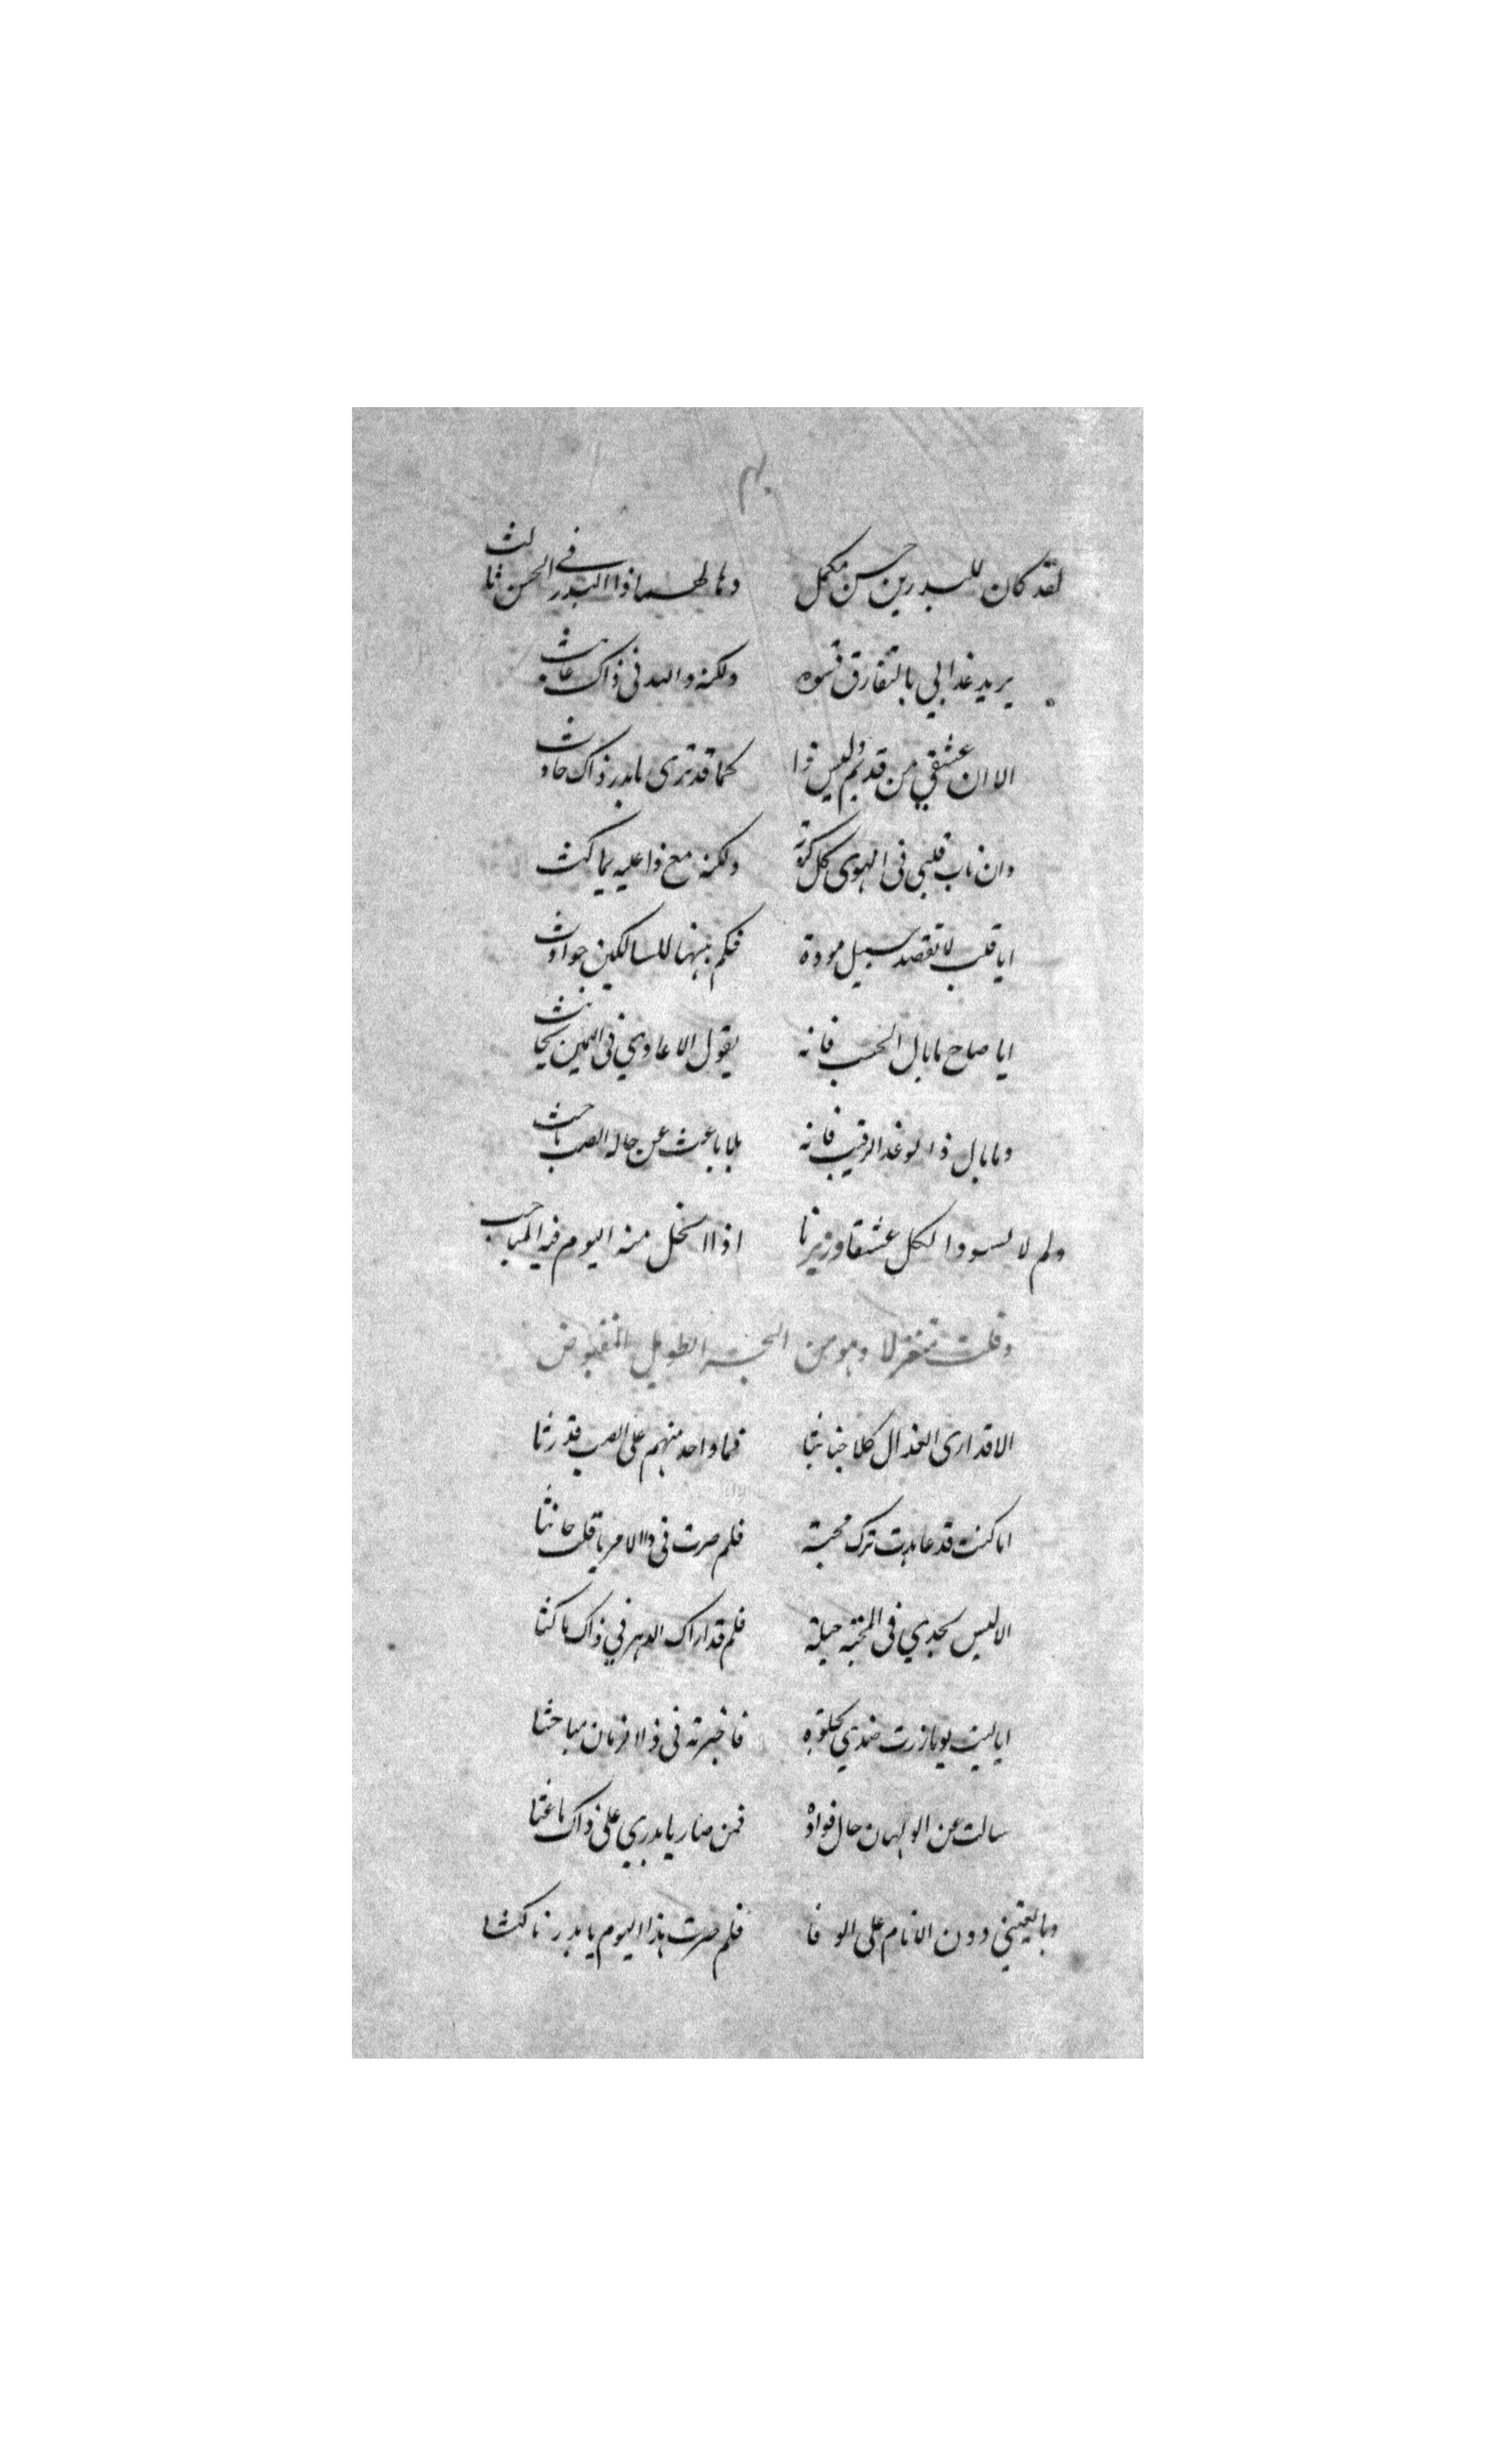 لقد كان للبدرين حسن مكمل وما لهما ذا البدر في الحسن ثالث
يريد عذابي بالتفارق قسوه ولكنه والبد في ذاك عابث
الا ان عشقي من قديم وليس ذا كما قد ترى يا بدر ذاك حادث
وان ناب قلبي في الهوى كل كربة ولكنه مع ذا عليه يماكث
ايا قلب لا تقصد سبيل مودة فكم بينها للسالكين حوادث
ايا صاح ما بال الحب فانه يقول الاعادي في اليمين يحانث
وما بال ذا الوغد الرقيب فانه بلا باعث عن حالة الصب باحث
ولم لا يسود الكل عشقا وزيرنا اذا انحل منه اليوم فيه المباحث
وقلت متغزلا وهو من البحر الطويل المقبوض
الا قد ارى العذال كلا خبائثا فما واحد منهم على الصب قد رثا
اما كنت قد عاهدت ترك محبة فلم صرت في ذا الامر يا قلب حانثا
الا ليس يجدي في المحبة حيلة فلم قد اراك الدهر في ذاك ماكثا
ايا ليت يوما زرت ضدي بخلوة فاخبرته في ذا الزمان مباحثا
سالت عن الولهان حال فواده فمن صار يا بدري على ذاك باعثا
وبايعتني دون الانام على الوفا فلم صرت هذا اليوم يا بدر ناكثا